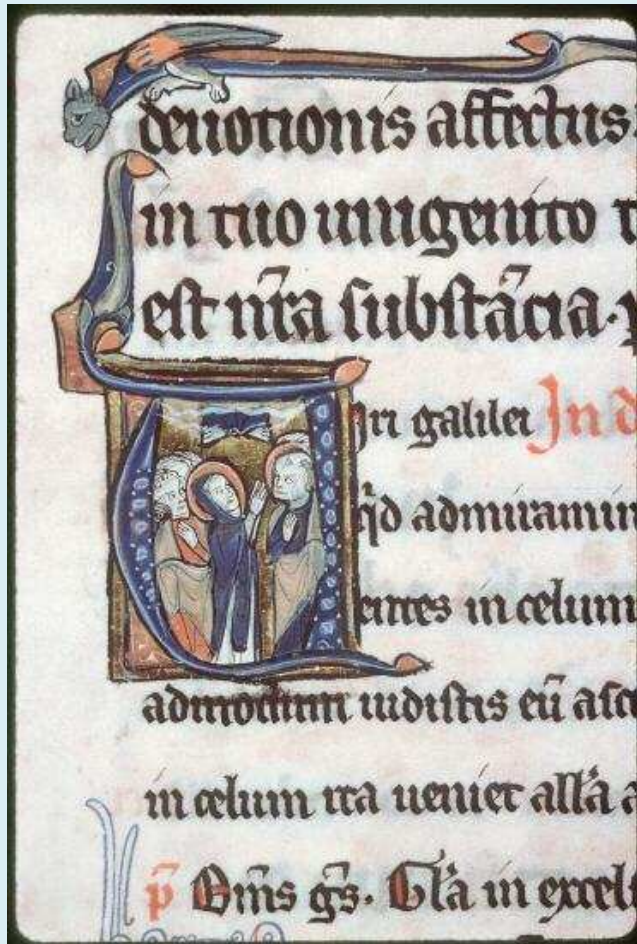 deuotionis affectus
in tuo unigenito
est nr̄a substācia.
Uiri galilei In d
q̇d admiramin
in celum
admodum uidistis eū asce
in celum ita ueniet all'a a
p̄ Om̄s gs̄. Gl'a in excel